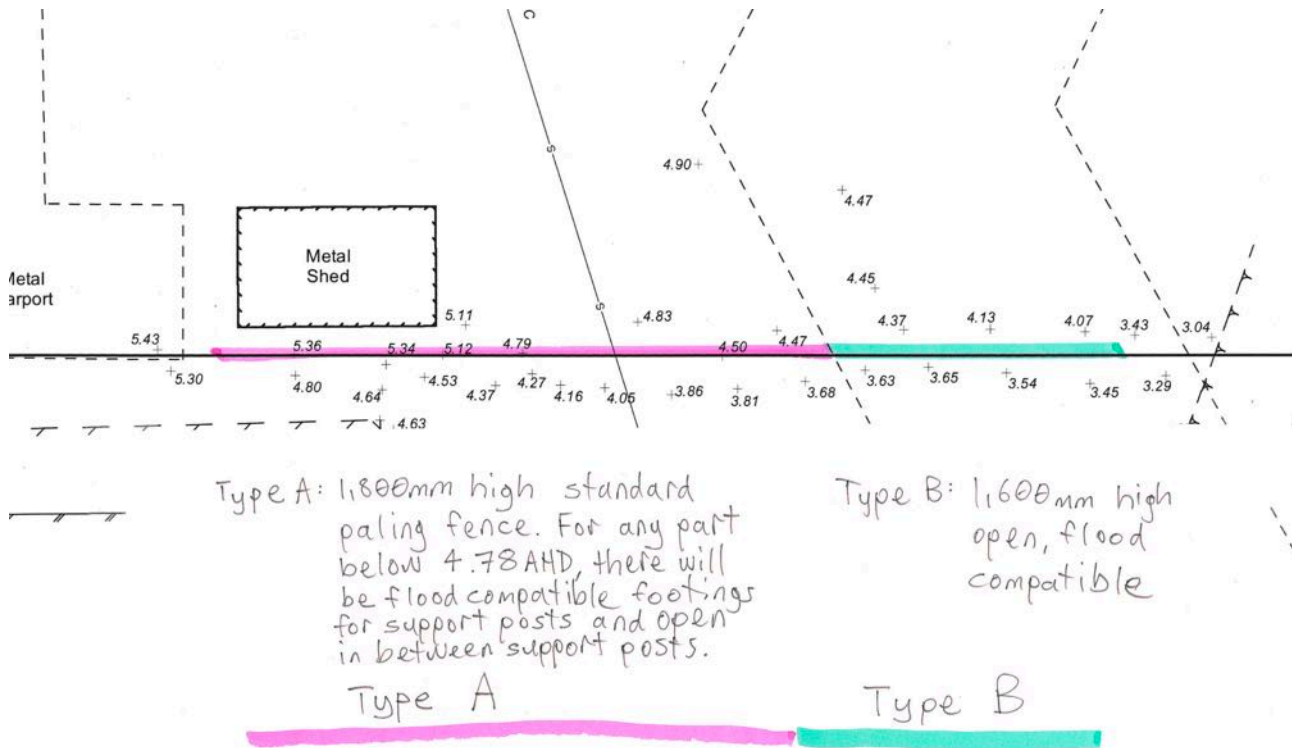 C
s
4.90
4.47
Metal
Shed
Metal
arport
s
4.45
5.11
4.83
4.37
4.13
4.07
3.43
3.04
5.43
5.36
5.34
5.12
4.79
4.50
4.47
5.30
4.80
4.64
4.53
4.37
4.27
4.16
4.05
3.86
3.81
3.68
3.63
3.65
3.54
3.45
3.29
4.63
Type A: 1,800mm high standard
paling fence. For any part
below 4.78 AHD, there will
be flood compatible footings
for support posts and open
in between support posts.
Type B: 1,600mm high
open, flood
compatible
Type A
Type B